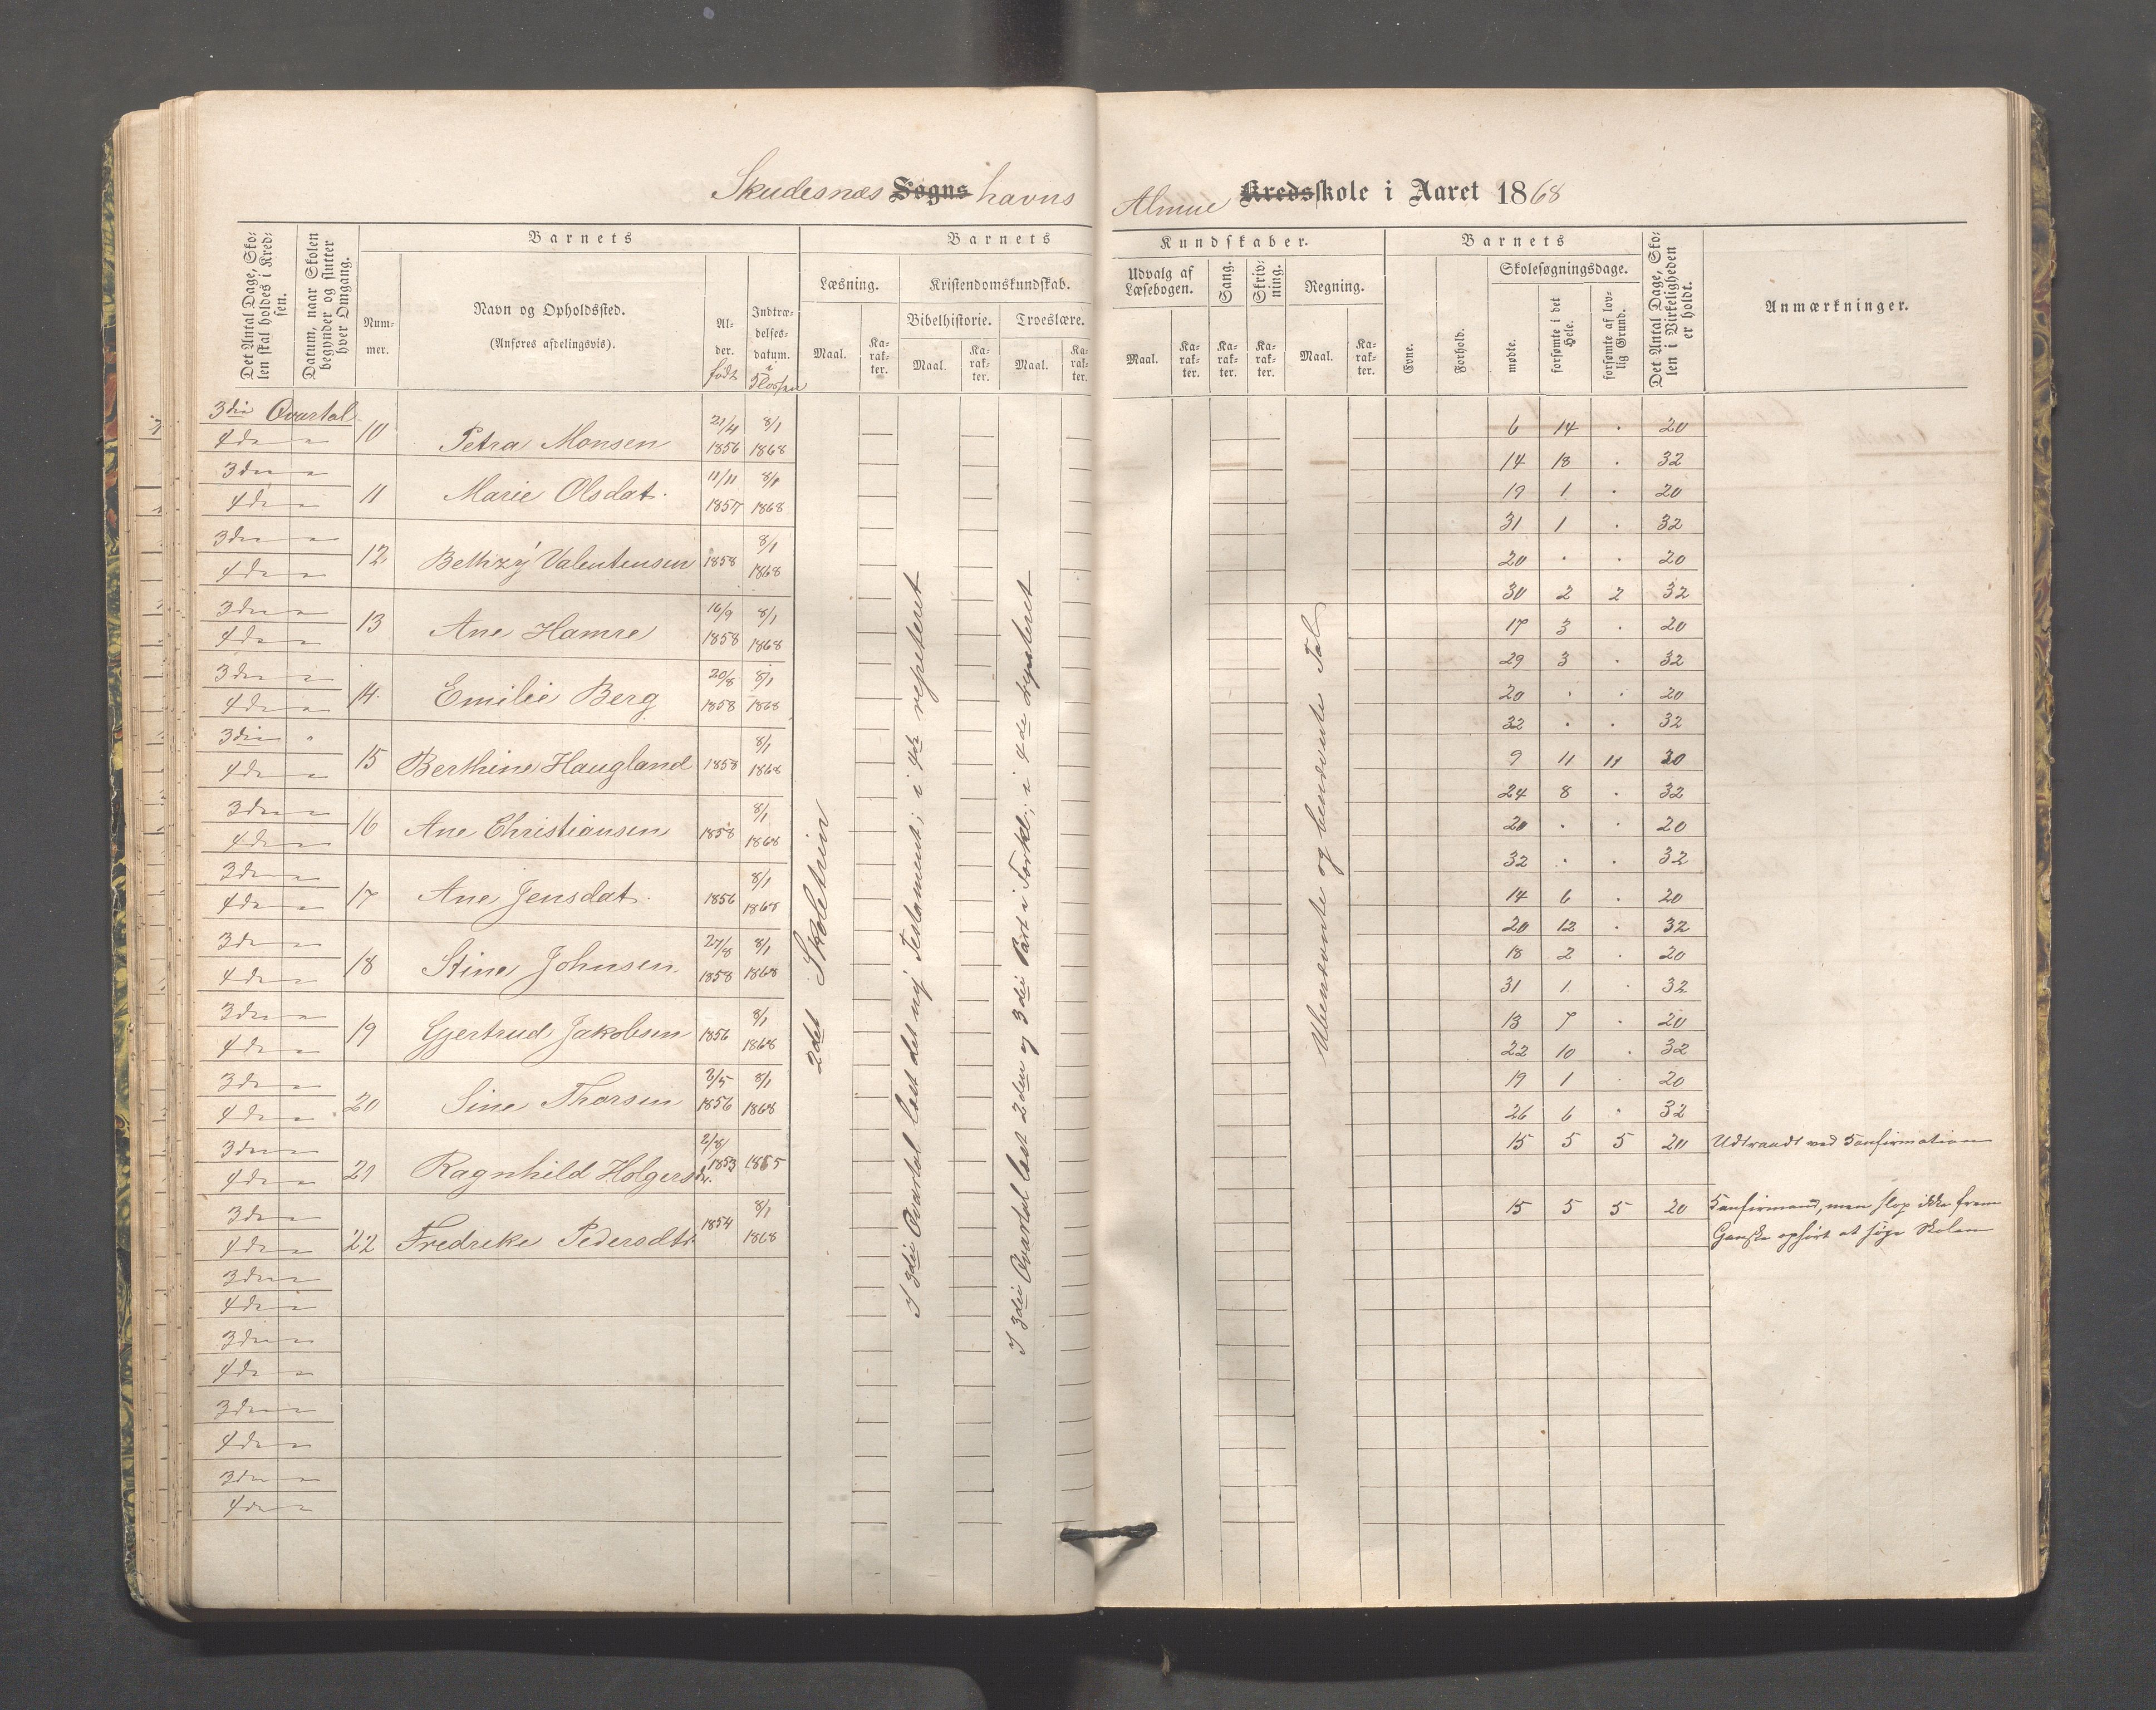 Skudesnæs Sogns havns Almue Kredsskole i Aaret 1868
Det Antal Dage, Sko-
len skal holdes i Kred-
sen.
Datum, naar Skolen
begynder og slutter
hver Omgang.
Barnets
Num-
mer.
Navn og Opholdssted.
(Anføres afdelingsvis).
Al-
der.
født
Indtræ-
delses-
datum.
i
Klassen
Barnets
Læsning.
Maal.
Ka-
rak-
ter.
Kristendomskundskab.
Bibelhistorie.
Maal.
Ka-
rak-
ter.
Troeslære.
Maal.
Ka-
rak-
ter.
Kundskaber.
Udvalg af
Læsebogen.
Maal.
Ka-
rak-
ter.
Sang.
Ka-
rak-
ter.
Skriv-
ning.
Ka-
rak-
ter.
Regning.
Maal.
Ka-
rak-
ter.
Barnets
Evne.
Forhold.
Skolesøgningsdage.
mødte.
forsømte i det
Hele.
forsømte af lov-
lig Grund.
Det Antal Dage, Sko-
len i Virkeligheden
er holdt.
Anmærkninger.
3die Qvartal 6 14 . 20
4de " 10 Petra Monsen 21/4 1856 8/1 1868 14 18 . 32
3die " 19 1 . 20
4de " 11 Marie Olsdat. 11/11 1857 8/1 1868 31 1 . 32
3die " 20 . . 20
4de " 12 Bethzy Valentensen 1858 8/1 1868 30 2 2 32
3die " 17 3 . 20
4de " 13 Ane Hamre 16/9 1858 8/1 1868 29 3 . 32
3die " 20 . . 20
4de " 14 Emilie Berg 20/8 1858 8/1 1868 32 . . 32
3die " 9 11 11 20
4de " 15 Berthine Haugland 1858 8/1 1868 24 8 . 32
3die " 20 . . 20
4de " 16 Ane Christiansen 1858 8/1 1868 32 . . 32
3die " 14 6 . 20
4de " 17 Ane Jensdat. 1856 8/1 1868 20 12 . 32
3die " 18 2 . 20
4de " 18 Stine Johnsen 27/8 1858 8/1 1868 31 1 . 32
3die " 13 7 . 20
4de " 19 Gjertrud Jakobsen 1856 8/1 1868 22 10 . 32
3die " 19 1 . 20
4de " 20 Sine Thorsen 2/5 1856 8/1 1868 26 6 . 32
3die " 15 5 5 20 Udtraadt ved Konfirmation
4de " 21 Ragnhild Holgersdr. 2/8 1853 1865
3die " 15 5 5 20 Konfirmand, men slap ikke frem
4de " 22 Fredreke Pedersdtr. 1854 8/1 1868 Ganske ophørt at søge Skolen
3die "
4de "
3die "
4de "
3die "
4de "
3die "
4de "
2det Skoletrin
I 3die Qvartal læst det ny Testament; i 4de repeteret
I 3die Qvartal læst 2den og 3die Part i Forkl.; i 4de repeteret
Ubenævnte og benævnte Tal